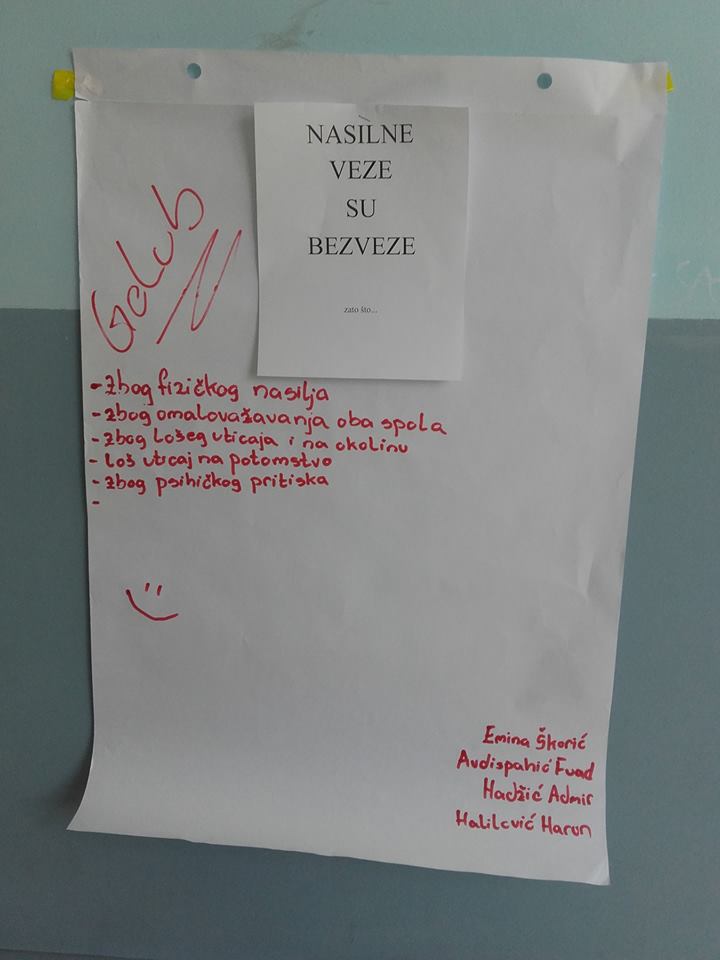 NASILNE
VEZE
SU
BEZVEZE
zato što...
Golub
-zbog fizičkog nasilja
-zbog omalovažavanja oba spola
-zbog lošeg uticaja i na okolinu
- loš uticaj na potomstvo
-zbog psihičkog pritiska
-
Emina Škorić
Avdispahić Fuad
Hadžić Admir
Halilović Harun